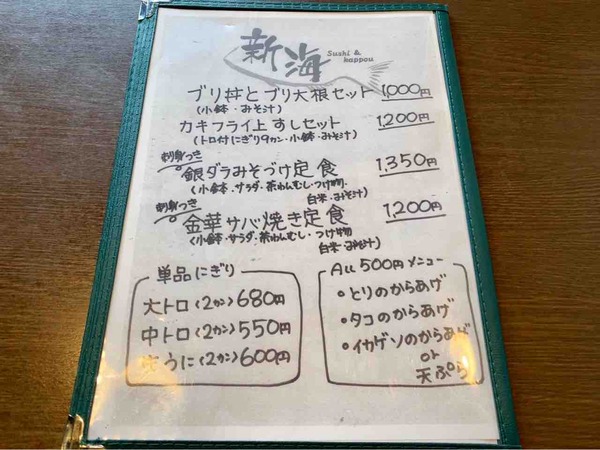 新海
Sushi &
kappou
ブリ丼とブリ大根セット 1,000円
(小鉢・みそ汁)
カキフライ上すしセット 1,200円
(トロ付にぎり9カン・小鉢・みそ汁)
刺身つき
銀ダラみそづけ定食 1,350円
(小鉢・サラダ・茶わんむし・つけ物・
白米・みそ汁)
刺身つき
金華サバ焼き定食 1,200円
(小鉢・サラダ・茶わんむし・つけ物
白米・みそ汁)
単品にぎり
大トロ(2カン)680円
中トロ(2カン)550円
生うに(2カン)600円
All 500円メニュー
・とりのからあげ
・タコのからあげ
・イカゲソのからあげ
or
天ぷら